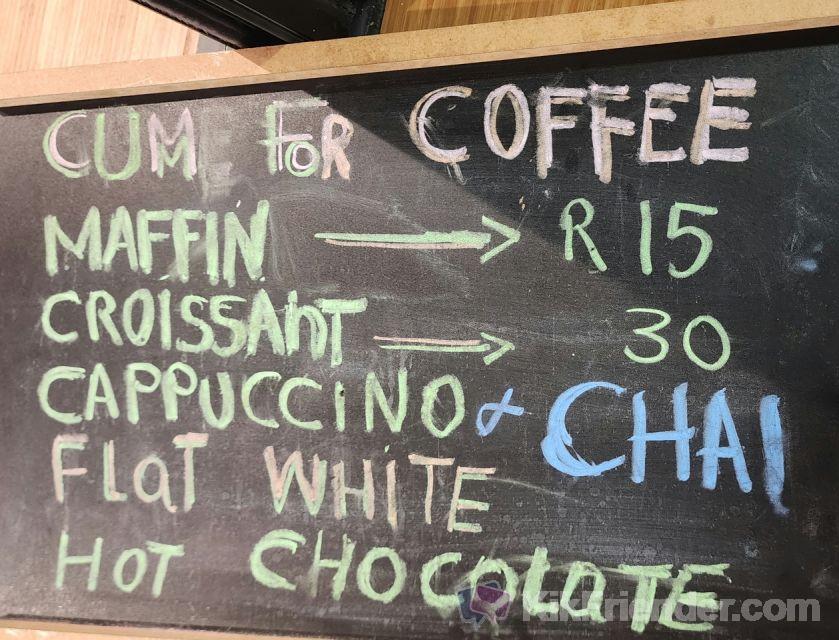 CUM FOR COFFEE
MAFFIN → R15
CROISSANT → 30
CAPPUCCINO & CHAI
FLAT WHITE
HOT CHOCOLATE
KinkFriender.com